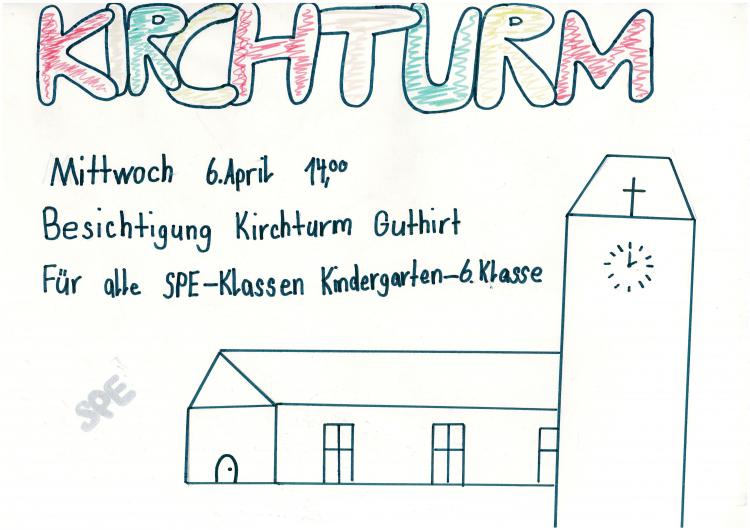 KIRCHTURM
Mittwoch 6.April 14,00
Besichtigung Kirchturm Guthirt
Für alle SPE-Klassen Kindergarten-6.Klasse
SPE